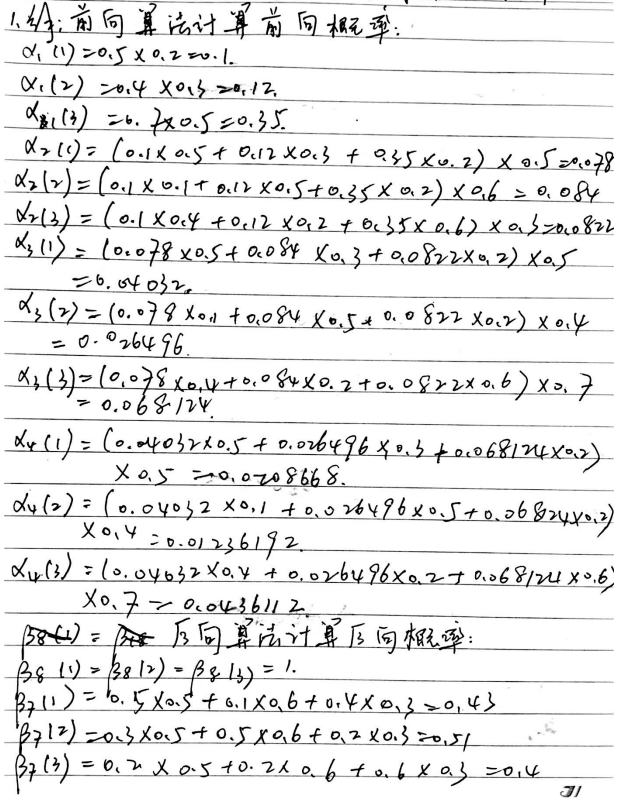 1.解:前向算法计算前向概率:
α₁(1)=0.5×0.2=0.1.
α₁(2)=0.4×0.3=0.12.
α₁(3)=0.7×0.5=0.35.
α₂(1)=(0.1×0.5+0.12×0.3+0.35×0.2)×0.5=0.078
α₂(2)=(0.1×0.1+0.12×0.5+0.35×0.2)×0.6=0.084
α₂(3)=(0.1×0.4+0.12×0.2+0.35×0.6)×0.3=0.0822
α₃(1)=(0.078×0.5+0.084×0.3+0.0822×0.2)×0.5
=0.04032.
α₃(2)=(0.078×0.1+0.084×0.5+0.0822×0.2)×0.4
=0.026496.
α₃(3)=(0.078×0.4+0.084×0.2+0.0822×0.6)×0.7
=0.068124.
α₄(1)=(0.04032×0.5+0.026496×0.3+0.068124×0.2)
×0.5=0.0208668.
α₄(2)=(0.04032×0.1+0.026496×0.5+0.06824×0.2)
×0.4=0.01236192.
α₄(3)=(0.04032×0.4+0.026496×0.2+0.068124×0.6)
×0.7=0.0436112
后向算法计算后向概率:
β₈(1)=β₈(2)=β₈(3)=1.
β₇(1)=0.5×0.5+0.1×0.6+0.4×0.3=0.43
β₇(2)=0.3×0.5+0.5×0.6+0.2×0.3=0.51
β₇(3)=0.2×0.5+0.2×0.6+0.6×0.3=0.4